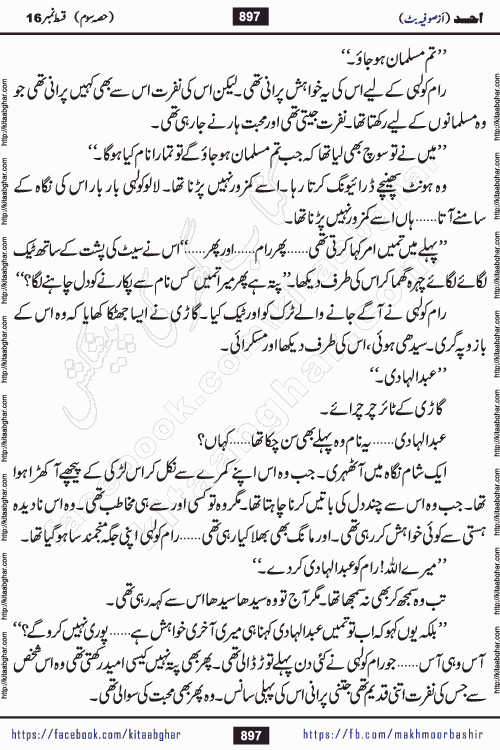 احد (از صوفیہ بٹ)
897
(حصہ سوم) قسط نمبر 16
’’تم مسلمان ہو جاؤ۔‘‘
رام کولہی کے لیے اس کی یہ خواہش پرانی تھی۔ لیکن اس کی نفرت اس سے بھی کہیں پرانی تھی جو
وہ مسلمانوں کے لیے رکھتا تھا۔ نفرت جیتی تھی اور محبت ہارنے جا رہی تھی۔
’’میں نے تو سوچ بھی لیا تھا کہ جب تم مسلمان ہو جاؤ گے تو تمہارا نام کیا ہوگا۔‘‘
وہ ہونٹ بھینچے ڈرائیونگ کرتا رہا۔ اسے کمزور نہیں پڑنا تھا۔ لالو کولہی بار بار اس کی نگاہ کے
سامنے آتا......ہاں اسے کمزور نہیں پڑنا تھا۔
’’پہلے میں تمہیں امر کہا کرتی تھی......پھر رام......اور پھر......‘‘اس نے سیٹ کی پشت کے ساتھ ٹیک
لگائے لگائے چہرہ گھما کر اس کی طرف دیکھا۔’’پتہ ہے پھر میرا تمہیں کس نام سے پکارنے کو دل چاہنے لگا؟‘‘
رام کولہی نے آگے جانے والے ٹرک کو اوور ٹیک کیا۔ گاڑی نے ایسا جھٹکا کھایا کہ وہ اس کے
بازو پہ گری۔ سیدھی ہوئی، اس کی طرف دیکھا اور مسکرائی۔
’’عبدالہادی۔‘‘
گاڑی کے ٹائر چرچرائے۔
عبدالہادی......یہ نام وہ پہلے بھی سن چکا تھا......کہاں؟
ایک شام نگاہ میں آ ٹھہری۔ جب وہ اس اپنے کمرے سے نکل کر اس لڑکی کے پیچھے آ کھڑا ہوا
تھا۔ جب وہ اس سے چند دل کی باتیں کرنا چاہتا تھا۔ مگر وہ تو کسی اور سے ہی مخاطب تھی۔ وہ اس نادیدہ
ہستی سے کوئی خواہش کر رہی تھی۔ اور مانگ بھی بھلا کیا رہی تھی......رام کولہی اپنی جگہ منجمند سا ہو گیا تھا۔
’’میرے اللہ! رام کو عبدالہادی کر دے۔‘‘
تب وہ سمجھ کر بھی نہ سمجھا تھا۔ مگر آج تو وہ سیدھا سیدھا اس سے کہہ رہی تھی۔
’’بلکہ یوں کہو کہ اب تو تمہیں عبدالہادی کہنا ہی میری آخری خواہش ہے......پوری نہیں کرو گے؟‘‘
آس وہی آس......جو رام کولہی نے کئی دن پہلے توڑ ڈالی تھی۔ پھر بھی پتہ نہیں کیسی امید رکھتی تھی وہ اس شخص
سے جس کی نفرت اتنی قدیم تھی جتنی پرانی اس کی پہلی سانس۔ وہ پھر بھی محبت کی سوالی تھی۔
https://facebook.com/kitaabghar
897
https://fb.com/makhmoorbashir
http://kitaabghar.com